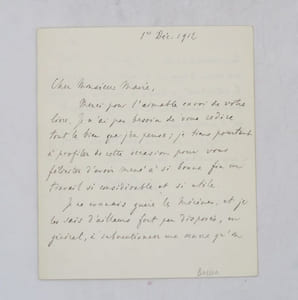 1er Déc. 1912
Cher Monsieur Maire,
Merci pour l'aimable envoi de votre
livre. Je n'ai pas besoin de vous redire
tout le bien que j'en pense ; je tiens pourtant
à profiter de cette occasion pour vous
féliciter d'avoir mené à si bonne fin un
travail si considérable et si utile.
Je ne connais guère les Mécènes, et je
les sais d'ailleurs fort peu disposés, en
général, à subventionner une œuvre qu'en